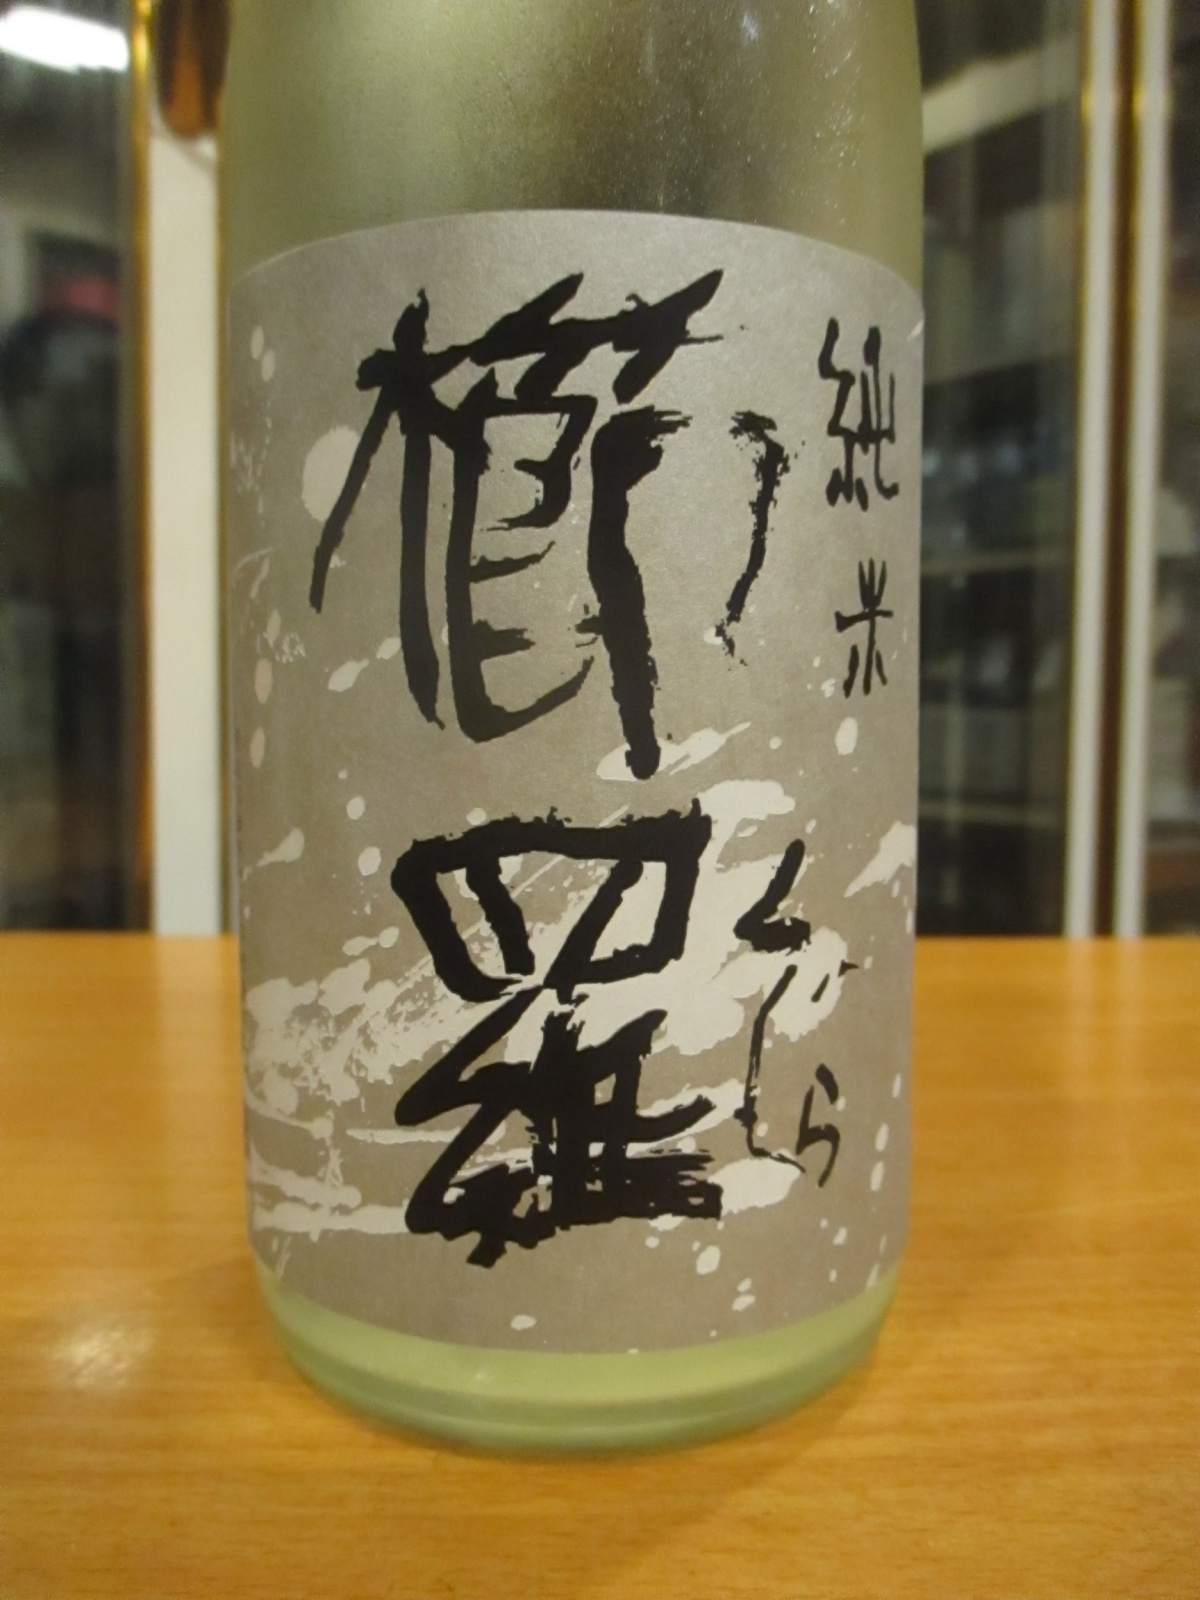 純米
くじら
櫛羅